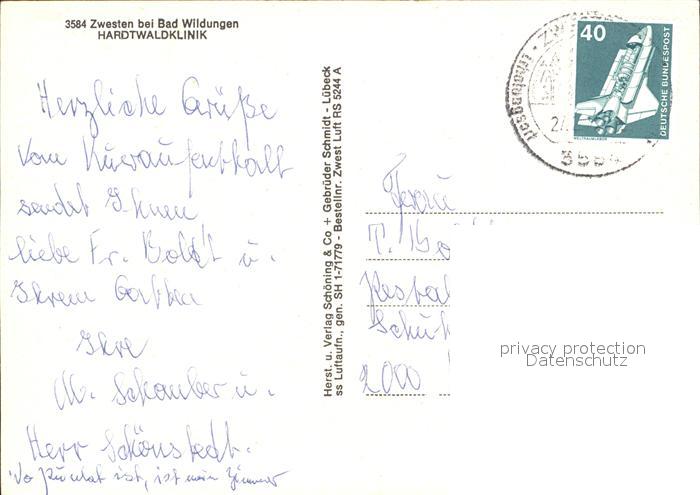 3584 Zwesten bei Bad Wildungen
HARDTWALDKLINIK
Herzliche Grüße
vom Kuraufenthalt
sendet Ihnen
liebe Fr. Boldt u.
Ihrem Gatten
Ihre
M. Schauber u.
Herr Schönstedt.
Wo Punkt ist, ist mein Zimmer
Herst. u. Verlag Schöning & Co + Gebrüder Schmidt - Lübeck
ss Luftaufn., gen. SH 1-71779 - Bestellnr. Zwest Luft RS 5244 A
40
DEUTSCHE BUNDESPOST
WELTRAUMLABOR
3584
Frau
T. Bo
Resta
Schu
2000
privacy protection
Datenschutz